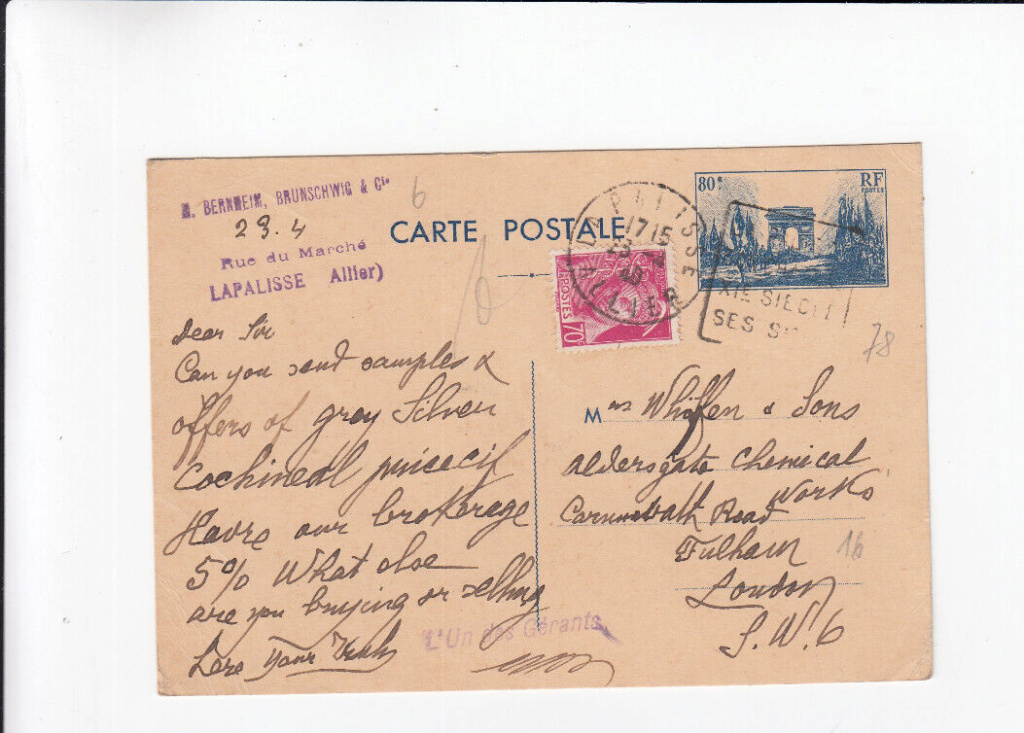 BERNHEIM, BRUNSCHWIG & Cie
23.4
Rue du Marché
LAPALISSE Allier)
6
CARTE POSTALE
80c
RF
POSTES
LAPALISSE
17 15
23
40
ALLIER
POSTES
70c
XIE SIECLE
SES
78
Dear Sir
Can you send samples &
offers of grey Silver
Cochineal price cif
Havre our brokerage
5% What else
are you buying or selling
Yours Truly
L'Un des Gérants,
Mrs Whiffen & Sons
Aldersgate Chemical
Works
Carnwath Road
Fulham
16
London
S.W.6